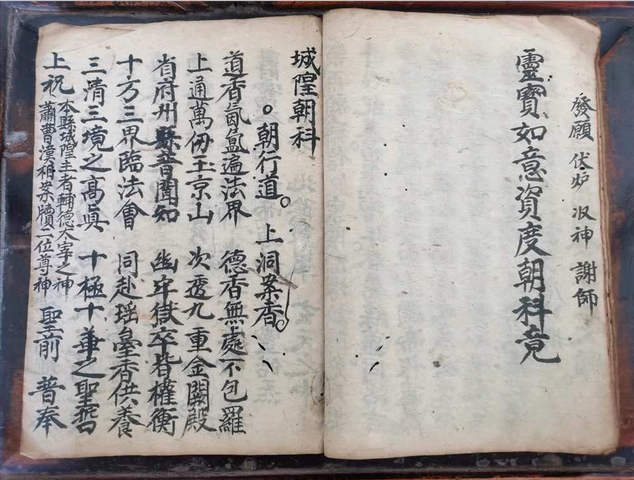 發願 伏炉 収神 謝師
靈寶如意資度朝科竟
城隍朝科
朝行道。上洞案香。
道香氤氳遍法界 德香無處不包羅
上通萬仞玉京山 次透九重金闕殿
省府州縣普聞知 幽牢獄卒皆權衡
十方三界臨法會 同赴瑤臺香供養
三清三境之高真 十極十華之聖
上祝 本縣城隍主者輔德大宰之神
蕭曹漢相案牘二位尊神 聖前 普奉